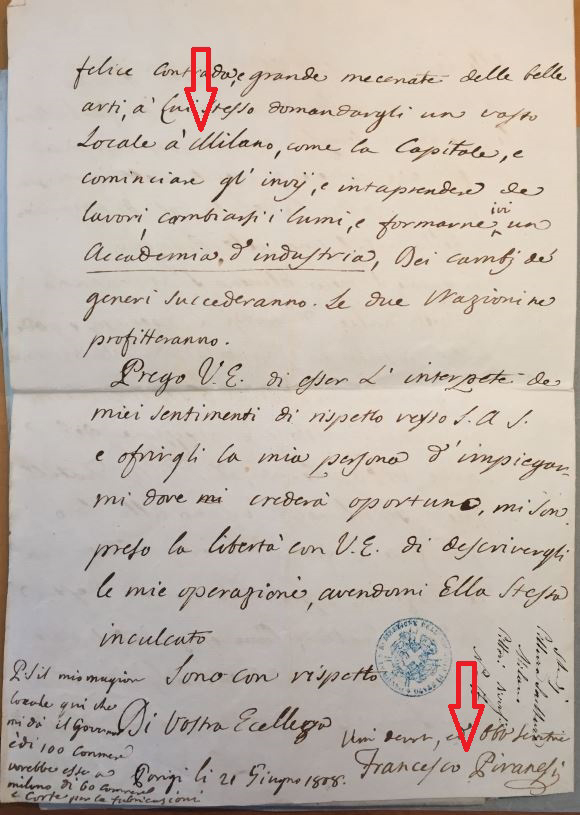 felice contrada, e grande mecenate delle belle
arti, à Lui stesso domandargli un vasto
Locale à Milano, come la Capitale, e
cominciare gl' invij, e intaprendere de
lavori, cambiarsi i lumi, e formarne ivi un
Accademia d'industria, Dei cambj de'
generi succederanno. Le due Nazioni ne
profitteranno.
Prego V. E. di esser L' interpete de
miei sentimenti di rispetto verso S. A. S.
e ofrirgli la mia persona d'impiegar-
mi dove mi crederà oportuno, mi son
preso la libertà con V. E. di descrivergli
le mie operazione, avendomi Ella Stessa
inculcato
Sono con rispetto
Di Vostra Ecellezza
Umi devot, ed Obb servitre
Francesco Piranesi
Parigi li 21 Giugno 1808.
P.S. il mio magior
locale qui che
mi dà il Governo
è di 100 Camere
vorebbe esse a
milano di 60 Camere
e Corte per la fabricazioni
Studj
Milano